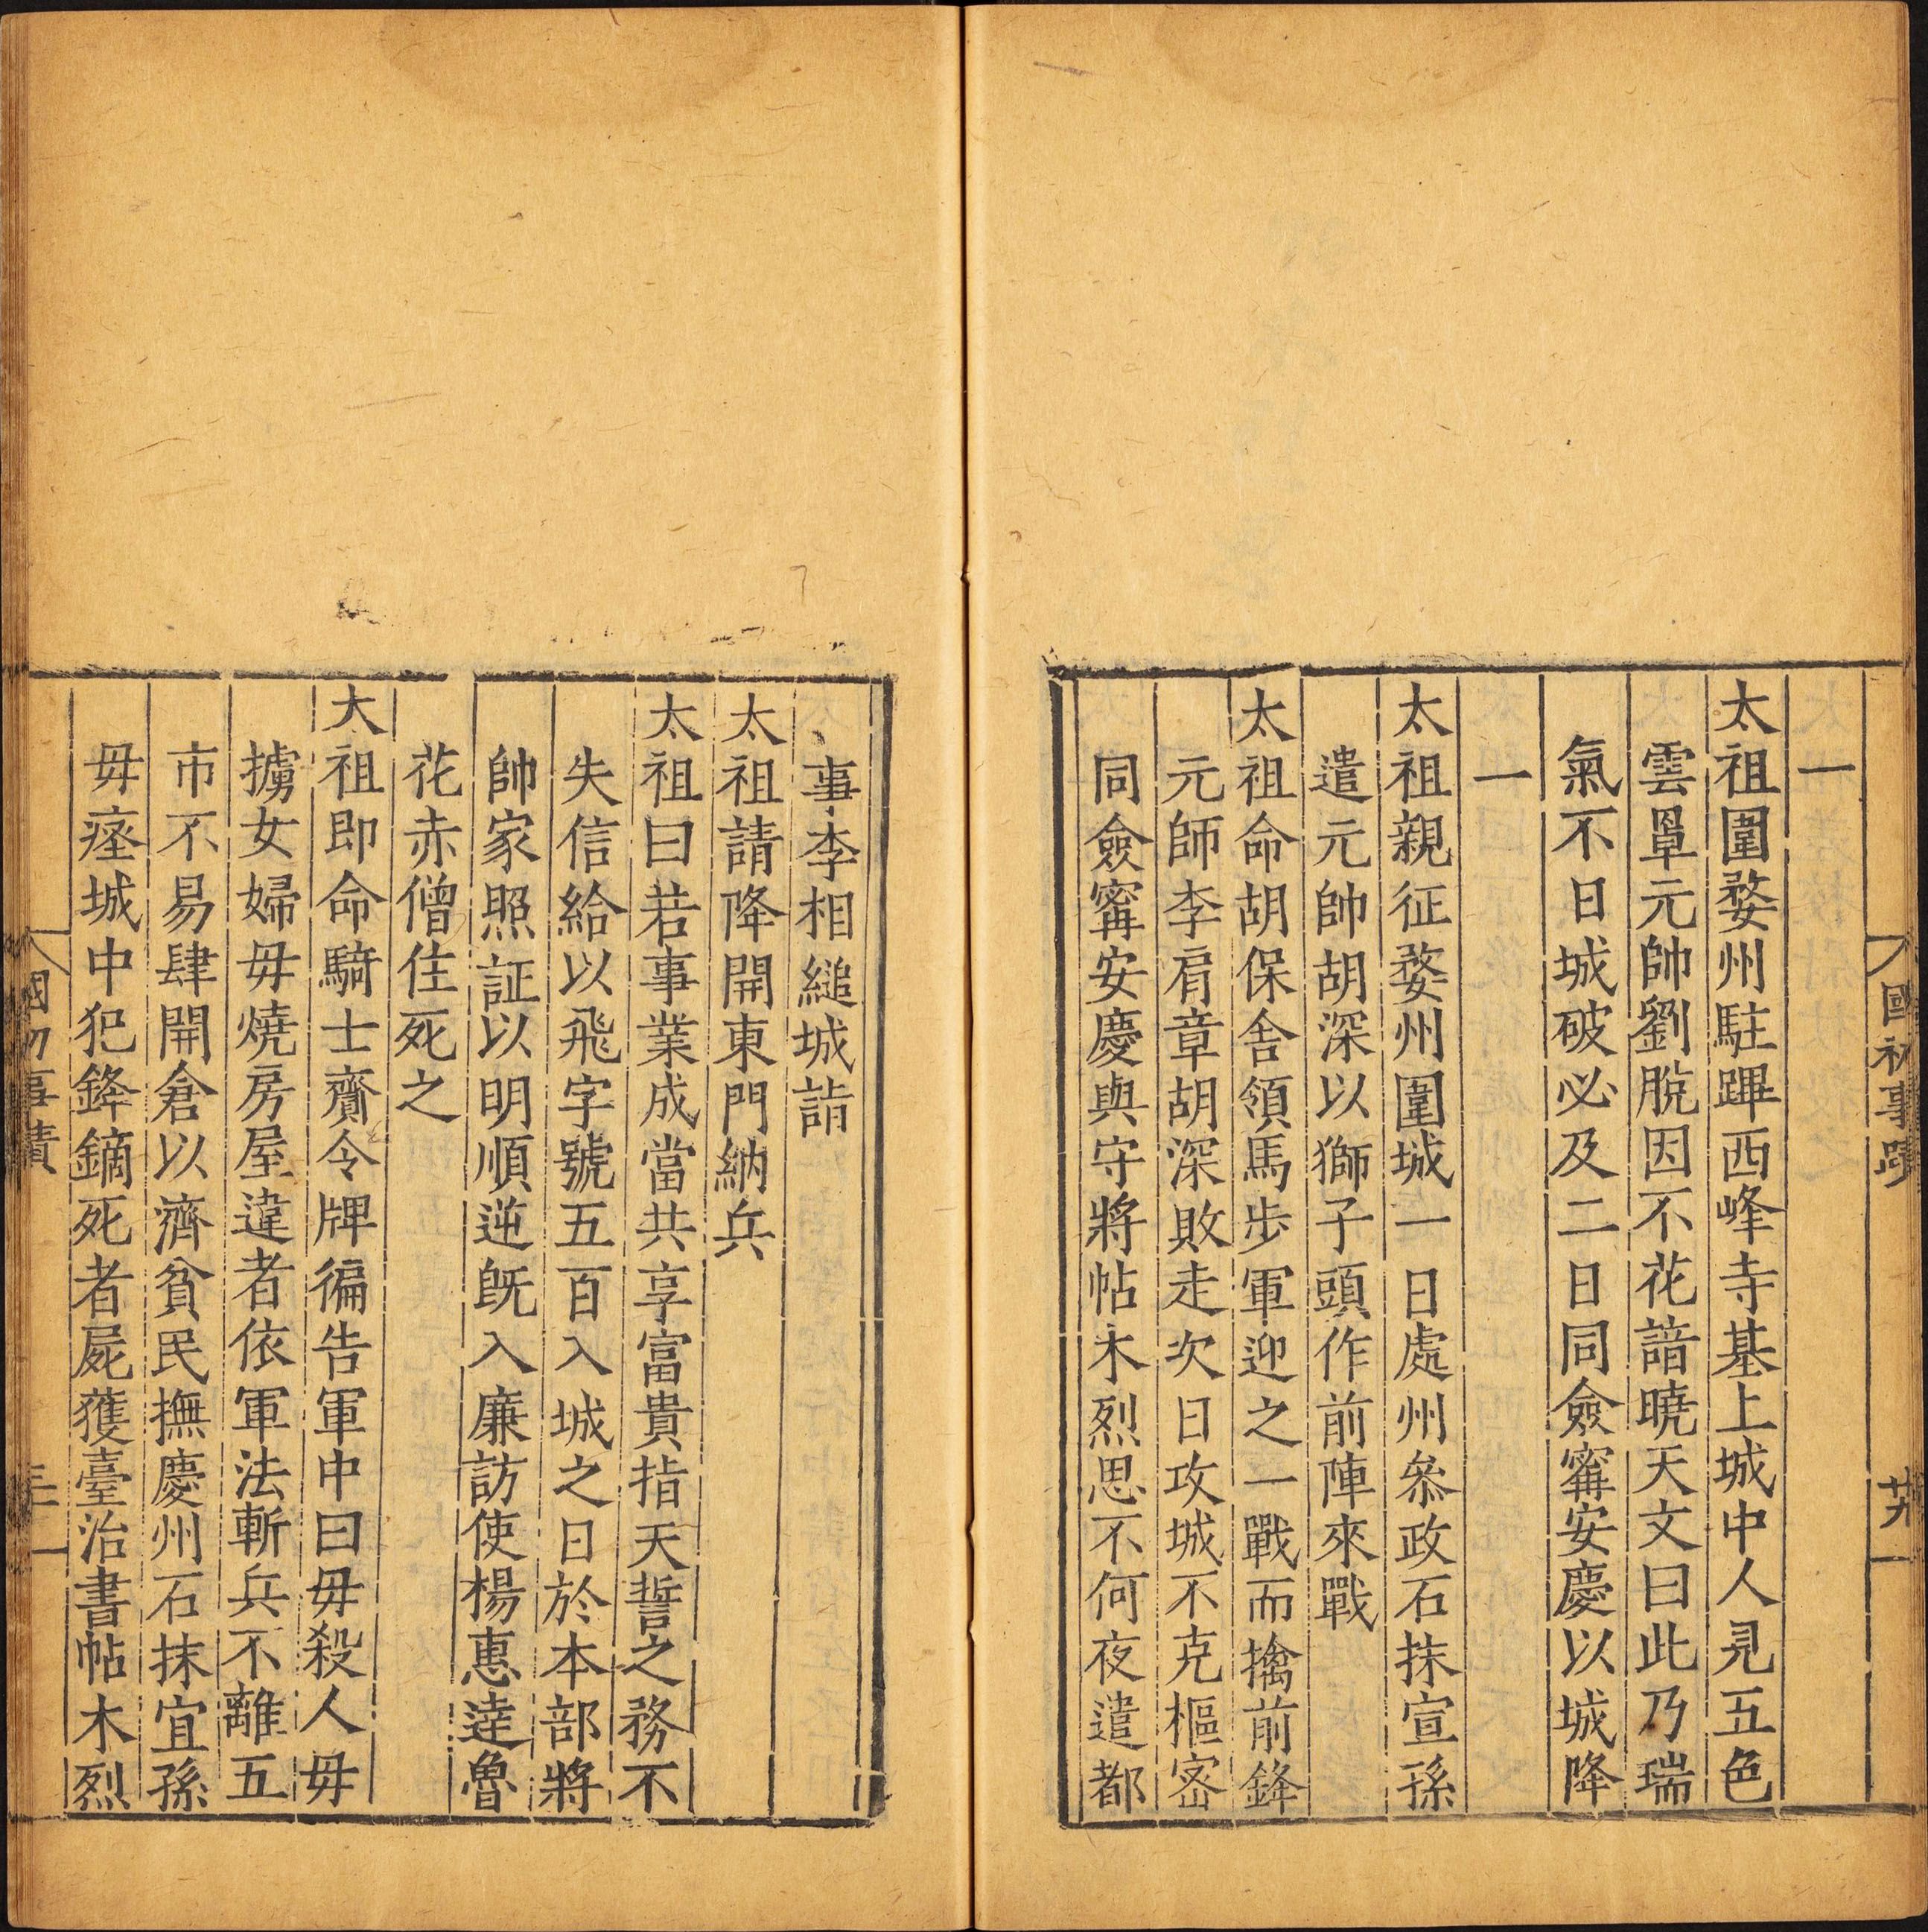 國初事蹟
廿九
一
太祖圍婺州駐蹕西峰寺基上城中人見五色
雲罩元帥劉脫因不花諳曉天文曰此乃瑞
氣不日城破必及二日同僉甯安慶以城降
一
太祖親征婺州圍城一日處州叅政石抹宣孫
遣元帥胡深以獅子頭作前陣來戰
太祖命胡保舍領馬步軍迎之一戰而擒前鋒
元師李肩章胡深敗走次日攻城不克樞宻
同僉甯安慶與守將帖木烈思不何夜遣都
事李相縋城詣
太祖請降開東門納兵
太祖曰若事業成當共享富貴指天誓之務不
失信給以飛字號五百入城之日於本部將
帥家照証以明順逆既入廉訪使楊惠達魯
花赤僧住死之
太祖即命騎士齎令牌徧告軍中曰毋殺人毋
擄女婦毋燒房屋違者依軍法斬兵不離五
市不易肆開倉以濟貧民撫慶州石抹宜孫
毋瘞城中犯鋒鏑死者屍獲臺治書帖木烈
國初事蹟